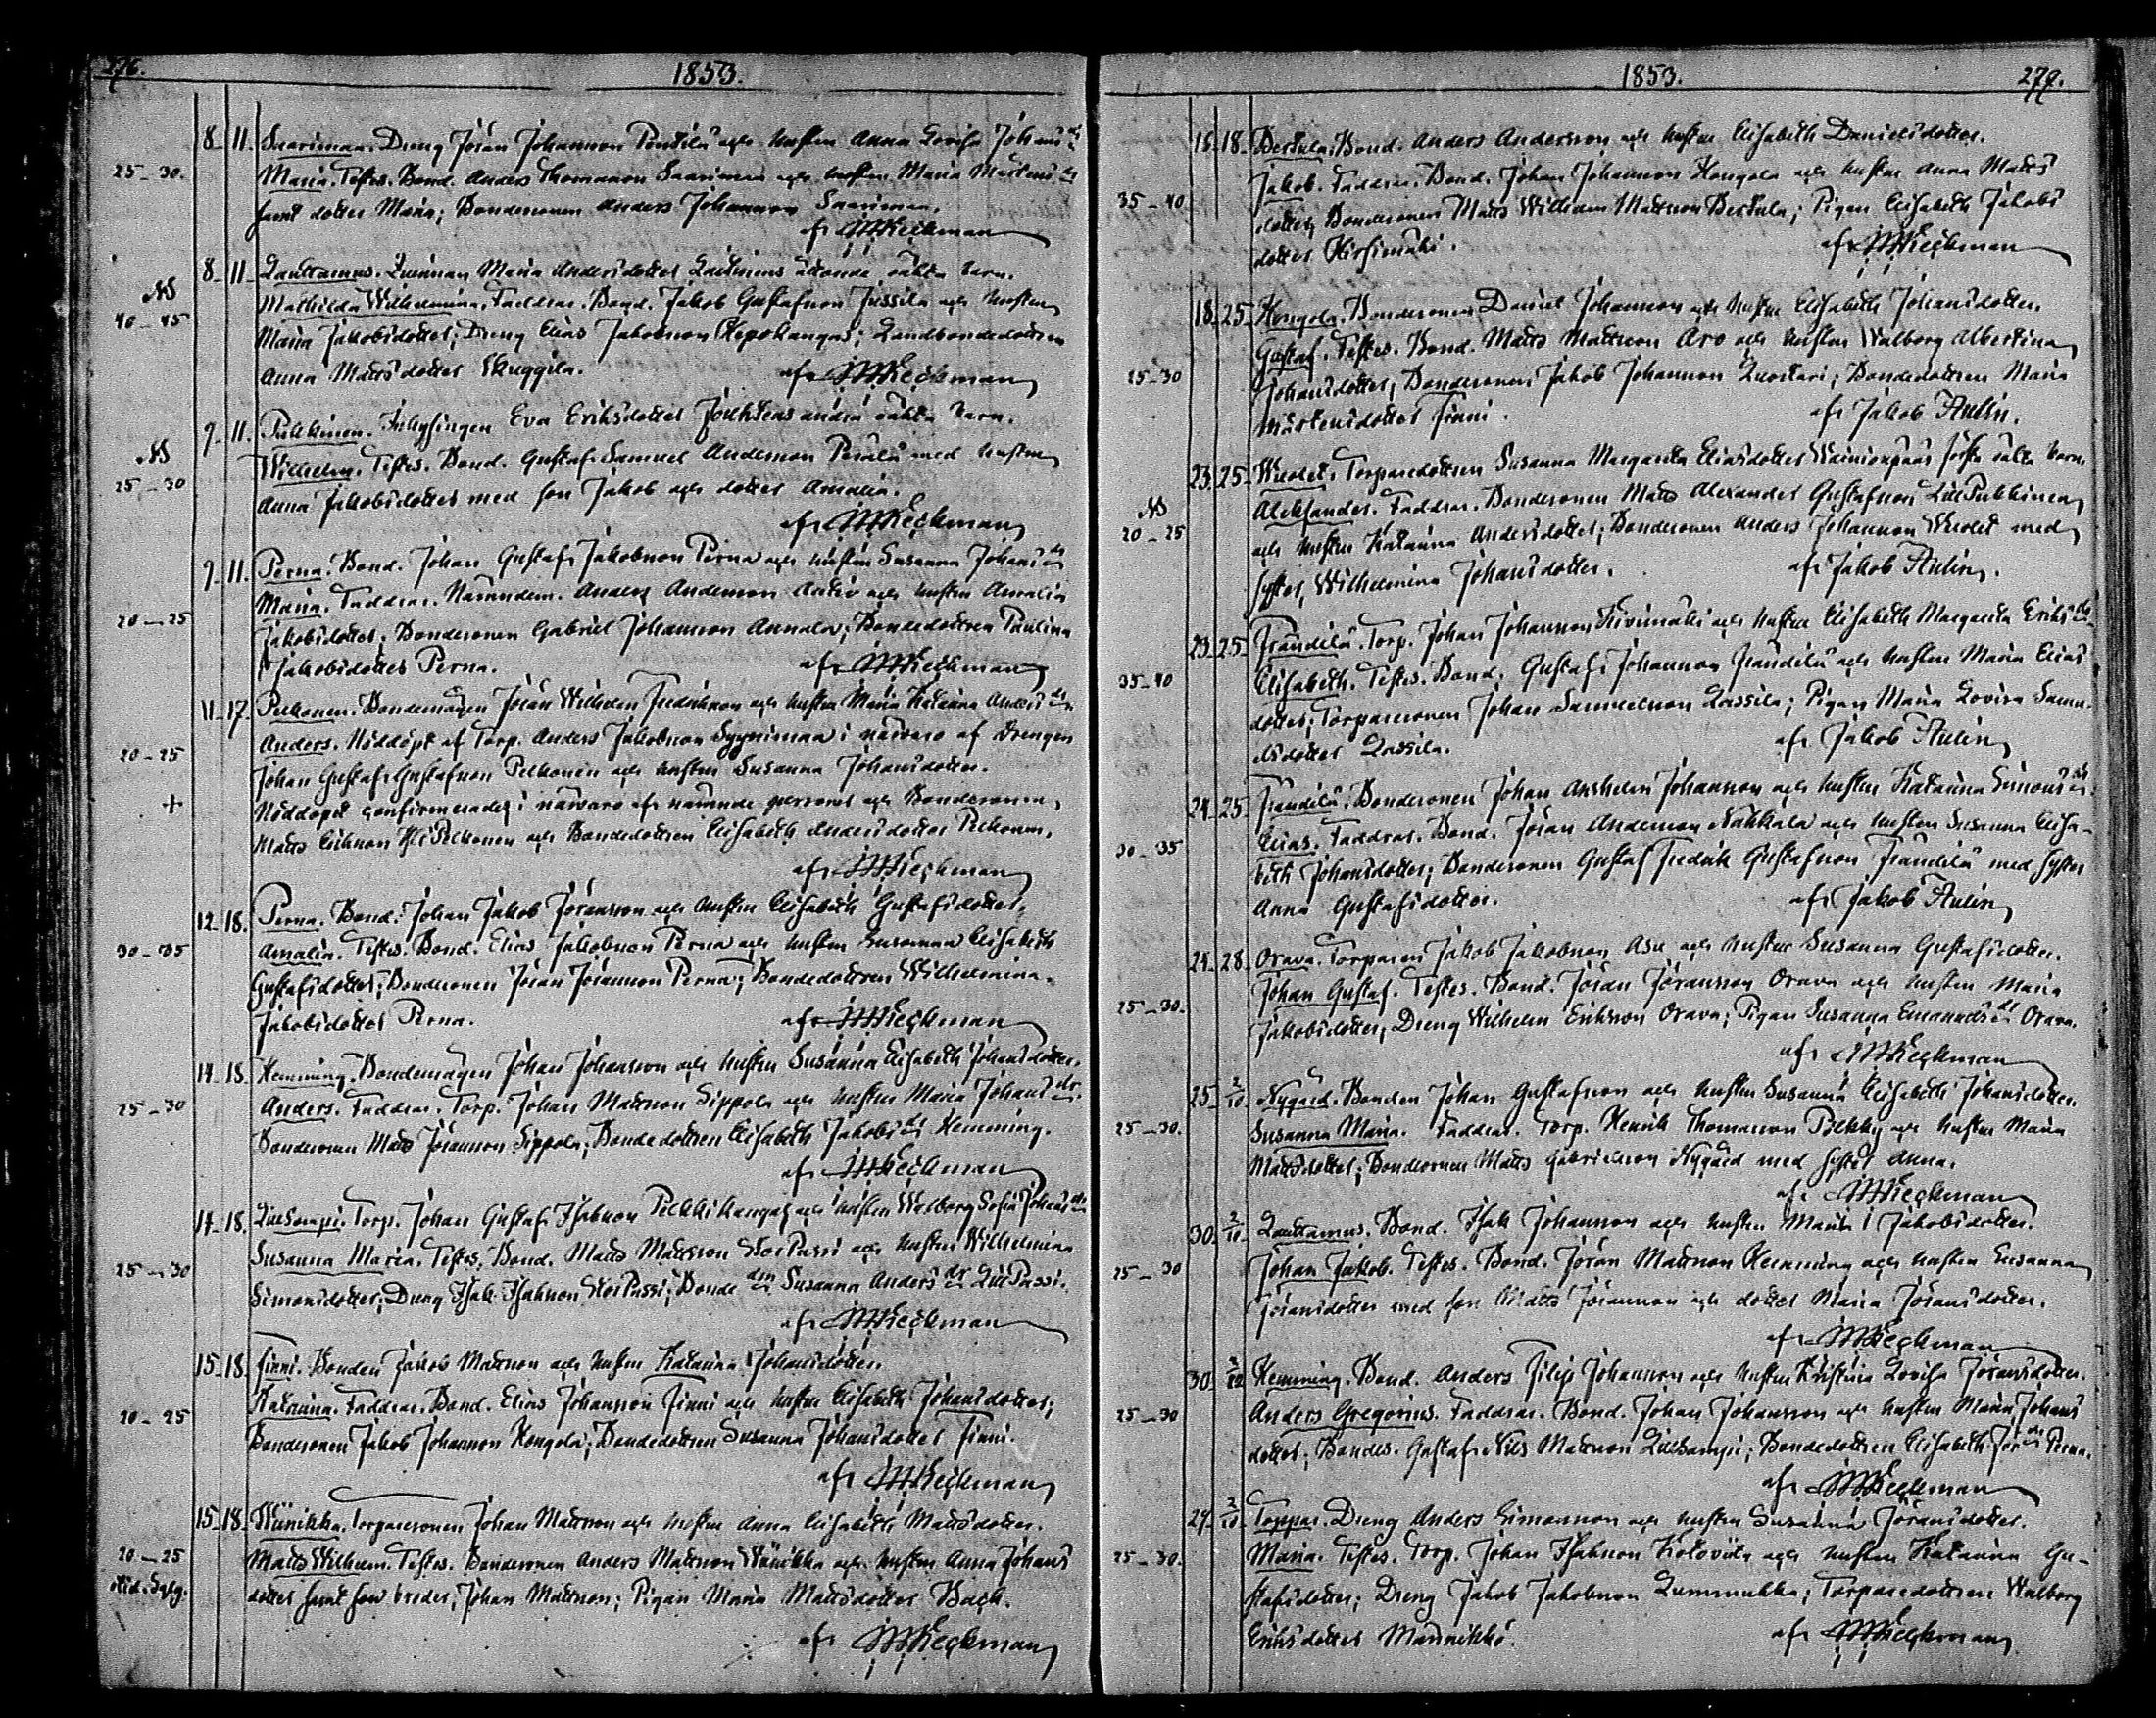 276.
1853.
8. 11. Saarimaa. Dreng Jöran Johansson Pentilä och hustru Anna Lovisa Johans dr
25–30. Maria. Testes. Bond. Anders Thomasson Saarimaa och hustru Maria Mårtens dr
samt dotter Maria; Bondesonen Anders Johansson Saarimaa.
af
8. 11. Lauttamus. Qvinnan Maria Andersdotter Lauttamus oäkta barn.
40–45 Mathilda Wilhelmina. Faddrar. Bond. Jakob Gustafsson Jussila och hustru
Maria Jakobsdotter; Dreng Elias Jakobsson Repokangas; Landbondedottren
Anna Mattsdotter
af
9. 11. Pulkkinen. Inhysingen Eva Eriksdotter andra oäkta barn.
25–30 Wilhelm. Testes. Bond. Gustaf Samuel Andersson Perälä med hustru
Anna Jakobsdotter med son Jakob och dotter Amalia.
af
9. 11. Perna. Bond. Johan Gustaf Jakobsson Perna och hustru Susanna Johans dr
Maria. Faddrar. Anders Andersson och hustru Amalia
20–25 Jakobsdotter; Bondesonen Gabriel Johansson Annala; Bondedottren Paulina
Jakobsdotter Perna. af
11. 17. Pelkonen. Bondemågen Jöran Wilhelm Fredriksson och hustru Maria Katarina Anders dr
20–25 Anders. Nöddöpt af Torp. Anders Jakobsson i närvaro af Drengen
Johan Gustaf Gustafsson Pelkonen och hustru Susanna Johansdotter.
+ Nöddopet confirmerades i närvaro af nämnde personer och Bondesonen
Matts Eriksson Pelkonen och Bondedottren Elisabeth Andersdotter Pelkonen.
af
12. 18. Perna. Bond. Johan Jakob Jöransson och hustru Elisabeth Gustafsdotter.
30–35 Amalia. Testes. Bond. Elias Jakobsson Perna och hustru Susanna Elisabeth
Gustafsdotter; Bondesonen Jöran Jöransson Perna; Bondedottren Wilhelmina
Jakobsdotter Perna. af
14. 18. Hemming. Bondemågen Johan Johansson och hustru Susanna Elisabeth Johansdotter.
25–30 Anders. Faddrar. Torp. Johan Mattsson Sippola och hustru Maria Johans dr.
Bondesonen Matts Jöransson Sippola; Bondedottren Elisabeth Jakobs dr Hemming.
af
14. 18. Torp. Johan Gustaf Isaksson Pelkkikangas och hustru Walborg Sofia Johans dr
Susanna Maria. Testes. Bond. Matts Mattsson Stor Passi och hustru Wilhelmina
25–30 Simonsdotter; Dreng Isak Isaksson Stor Passi; Bonde dtn Susanna Anders dr Lill Passi.
af
15. 18. Finni. Bonden Jakob Mattsson och hustru Katarina Johansdotter.
20–25 Katarina. Faddrar. Bond. Elias Johansson Finni och hustru Elisabeth Johansdotter;
Bondesonen Jakob Johansson Hongola; Bondedottren Susanna Johansdotter Finni.
af
15. 18. Wänikkä. Torparesonen Johan Mattsson och hustru Anna Elisabeth Mattsdotter.
20–25 Matts Wilhelm. Testes. Bondesonen Anders Mattsson och hustru Anna Johans
dotter samt son broder, Johan Mattsson; Pigan Maria Mattsdotter Back.
af
1853.
277.
15. 18. Bertula. Bond. Anders Andersson och hustru Elisabeth Danielsdotter.
35–40 Jakob. Faddrar. Bond. Johan Johansson Hongola och hustru Anna Matts
dotter; Bondesonen Matts Wilhelm Mattsson Bertula; Pigan Elisabeth Jakobs
dotter Hirsimäki. af
18. 25. Hongola. Bondesonen Daniel Johansson och hustru Elisabeth Johansdotter.
Gustaf. Testes. Bond. Matts Mattsson Aro och hustru Walborg Albertina
25–30 Johansdotter; Bondesonen Jakob Johansson Luostari; Bondedottren Maria
Mårtensdotter Finni. af Jakob Aulin.
23. 25. Wuolet. Torparedottren Susanna Margareta Eliasdotter Wainionpääs första oäkta barn.
20–25 Aleksander. Faddrar. Bondesonen Matts Alexander Gustafsson Lill Pukkinen
och hustru Katarina Andersdotter; Bondesonen Anders Johansson Wuolet med
syster, Wilhelmina Johansdotter. af Jakob Aulin.
23. 25. Frändilä. Torp. Johan Johansson Kivimäki och hustru Elisabeth Margareta Eriks dr.
35–40 Elisabeth. Testes. Bond. Gustaf Johansson Frändilä och hustru Maria Elias
dotter; Torparesonen Johan Samuelsson Lassila; Pigan Maria Lovisa Samu-
elsdotter Lassila. af Jakob Aulin
24. 25. Frändilä. Bondesonen Johan Anshelm Johansson och hustru Katarina Simons dr.
30–35 Elias. Faddrar. Bond. Jöran Andersson Nahkala och hustru Susanna Elisa-
beth Johansdotter; Bondesonen Gustaf Fredrik Gustafsson Frändilä med syster
Anna Gustafsdotter. af Jakob Aulin
24. 28. Orava. Torparen Jakob Jakobsson Asu och hustru Susanna Gustafsdotter.
25–30. Johan Gustaf. Testes. Bond. Jöran Jöransson Orava och hustru Maria
Jakobsdotter, Dreng Wilhelm Eriksson Orava; Pigan Susanna Emanuels dr Orava.
af
25. 2/10 Nygård. Bonden Johan Gustafsson och hustru Susanna Elisabeth Johansdotter.
25–30. Susanna Maria. Faddrar. Torp. Henrik Thomasson och hustru Maria
Mattsdotter; Bondesonen Matts Gabrielsson Nygård med syster Anna.
af
30. 2/10 Lauttamus. Bond. Isak Johansson och hustru Maria Jakobsdotter.
25–30 Johan Jakob. Testes. Bond. Jöran Mattsson Hemming och hustru Susanna
Jöransdotter med son Matts Jöransson och dotter Maria Jöransdotter.
af
30. 2/10 Hemming. Bond. Anders Filip Johansson och hustru Kristina Lovisa Jöransdotter.
25–30 Anders Gregorius. Faddrar. Bond. Johan Johansson och hustru Maria Johans
dotter; Bondes. Gustaf Nils Mattsson; Bondedottren Elisabeth Jör dr Perna.
af
27. 2/10 Toppar. Dreng Anders Simonsson och hustru Susanna Jöransdotter.
25–30. Maria. Testes. Torp. Johan Isaksson och hustru Katarina Gu-
stafsdotter; Dreng Jakob Jakobsson Lummukka; Torparedottren Walborg
Eriksdotter Männikkö. af